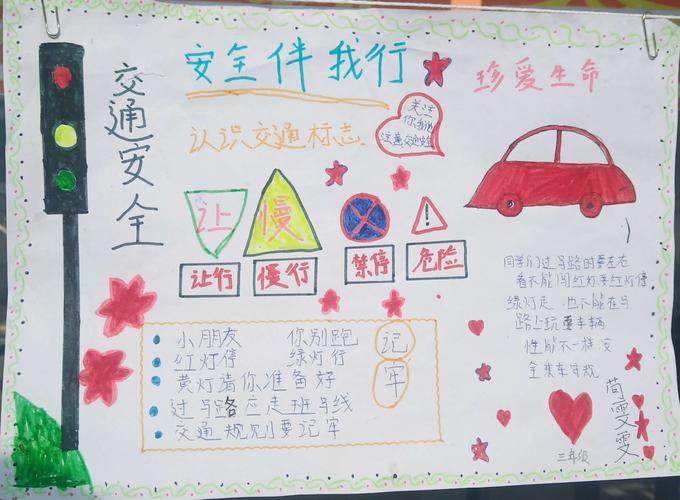 交通安全
安全伴我行
珍爱生命
认识交通标志
关注
你我他
注意交通安全
让
慢
让行
慢行
禁停
危险
小朋友 你别跑
红灯停 绿灯行
黄灯请你准备好
过马路应走班马线
交通规则要记牢
记牢
同学们过马路时要左右
看不能闯红灯要红灯停
绿灯走 也不能在马
路上玩耍车辆
性能不一样 安
全乘车守规
苟雯雯
三年级